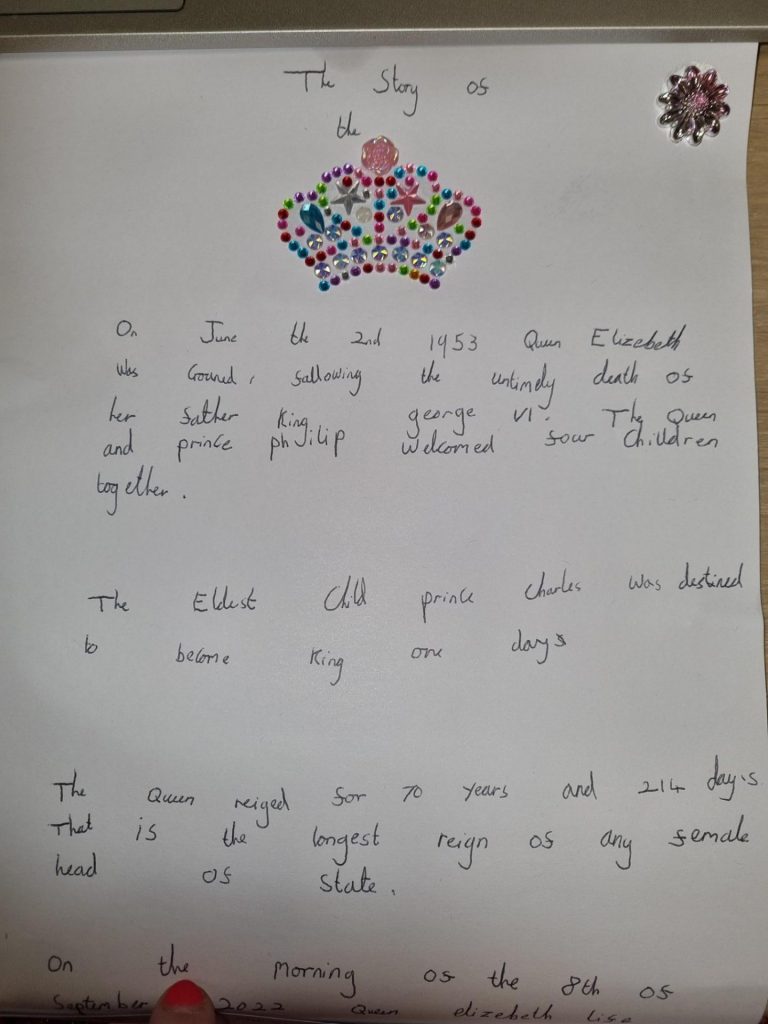 The Story of
the
On June the 2nd 1953 Queen Elizebeth
was Crowned, following the untimely death of
her father King george VI. The Queen
and prince philip welcomed four Children
together.
The Eldest Child prince Charles was destined
to become King one days
The Queen reiged for 70 years and 214 day's
That is the longest reign of any female
head of state.
On the morning of the 8th of
September 2022 Queen elizebeth